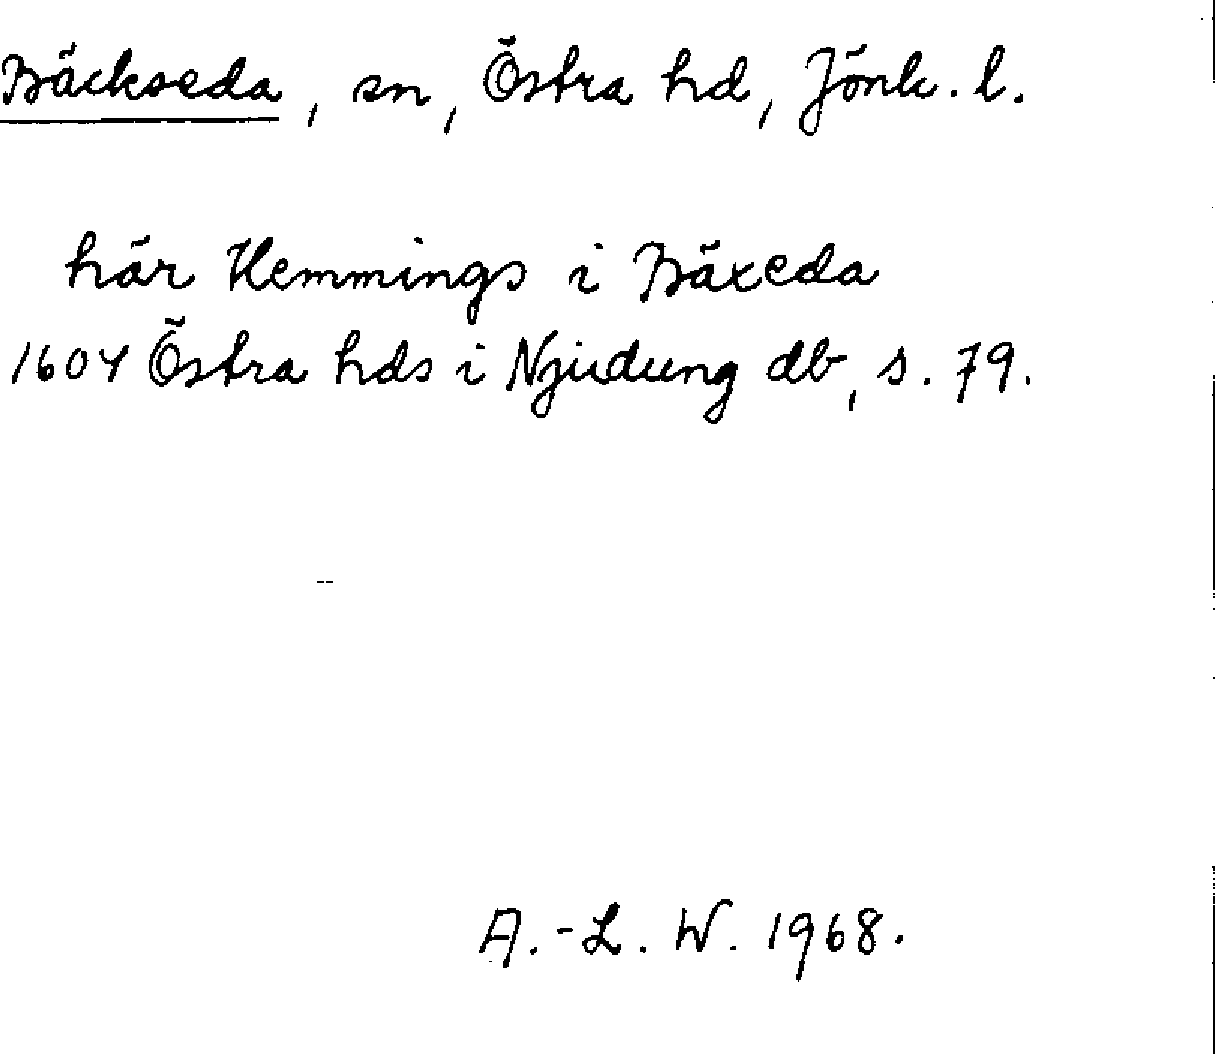 Bäckseda, sn, Östra hd, Jönk. l.
här Hemmings i Bäxeda
1604 Östra hds i Njudung db, s. 79.
A.-L. W. 1968.